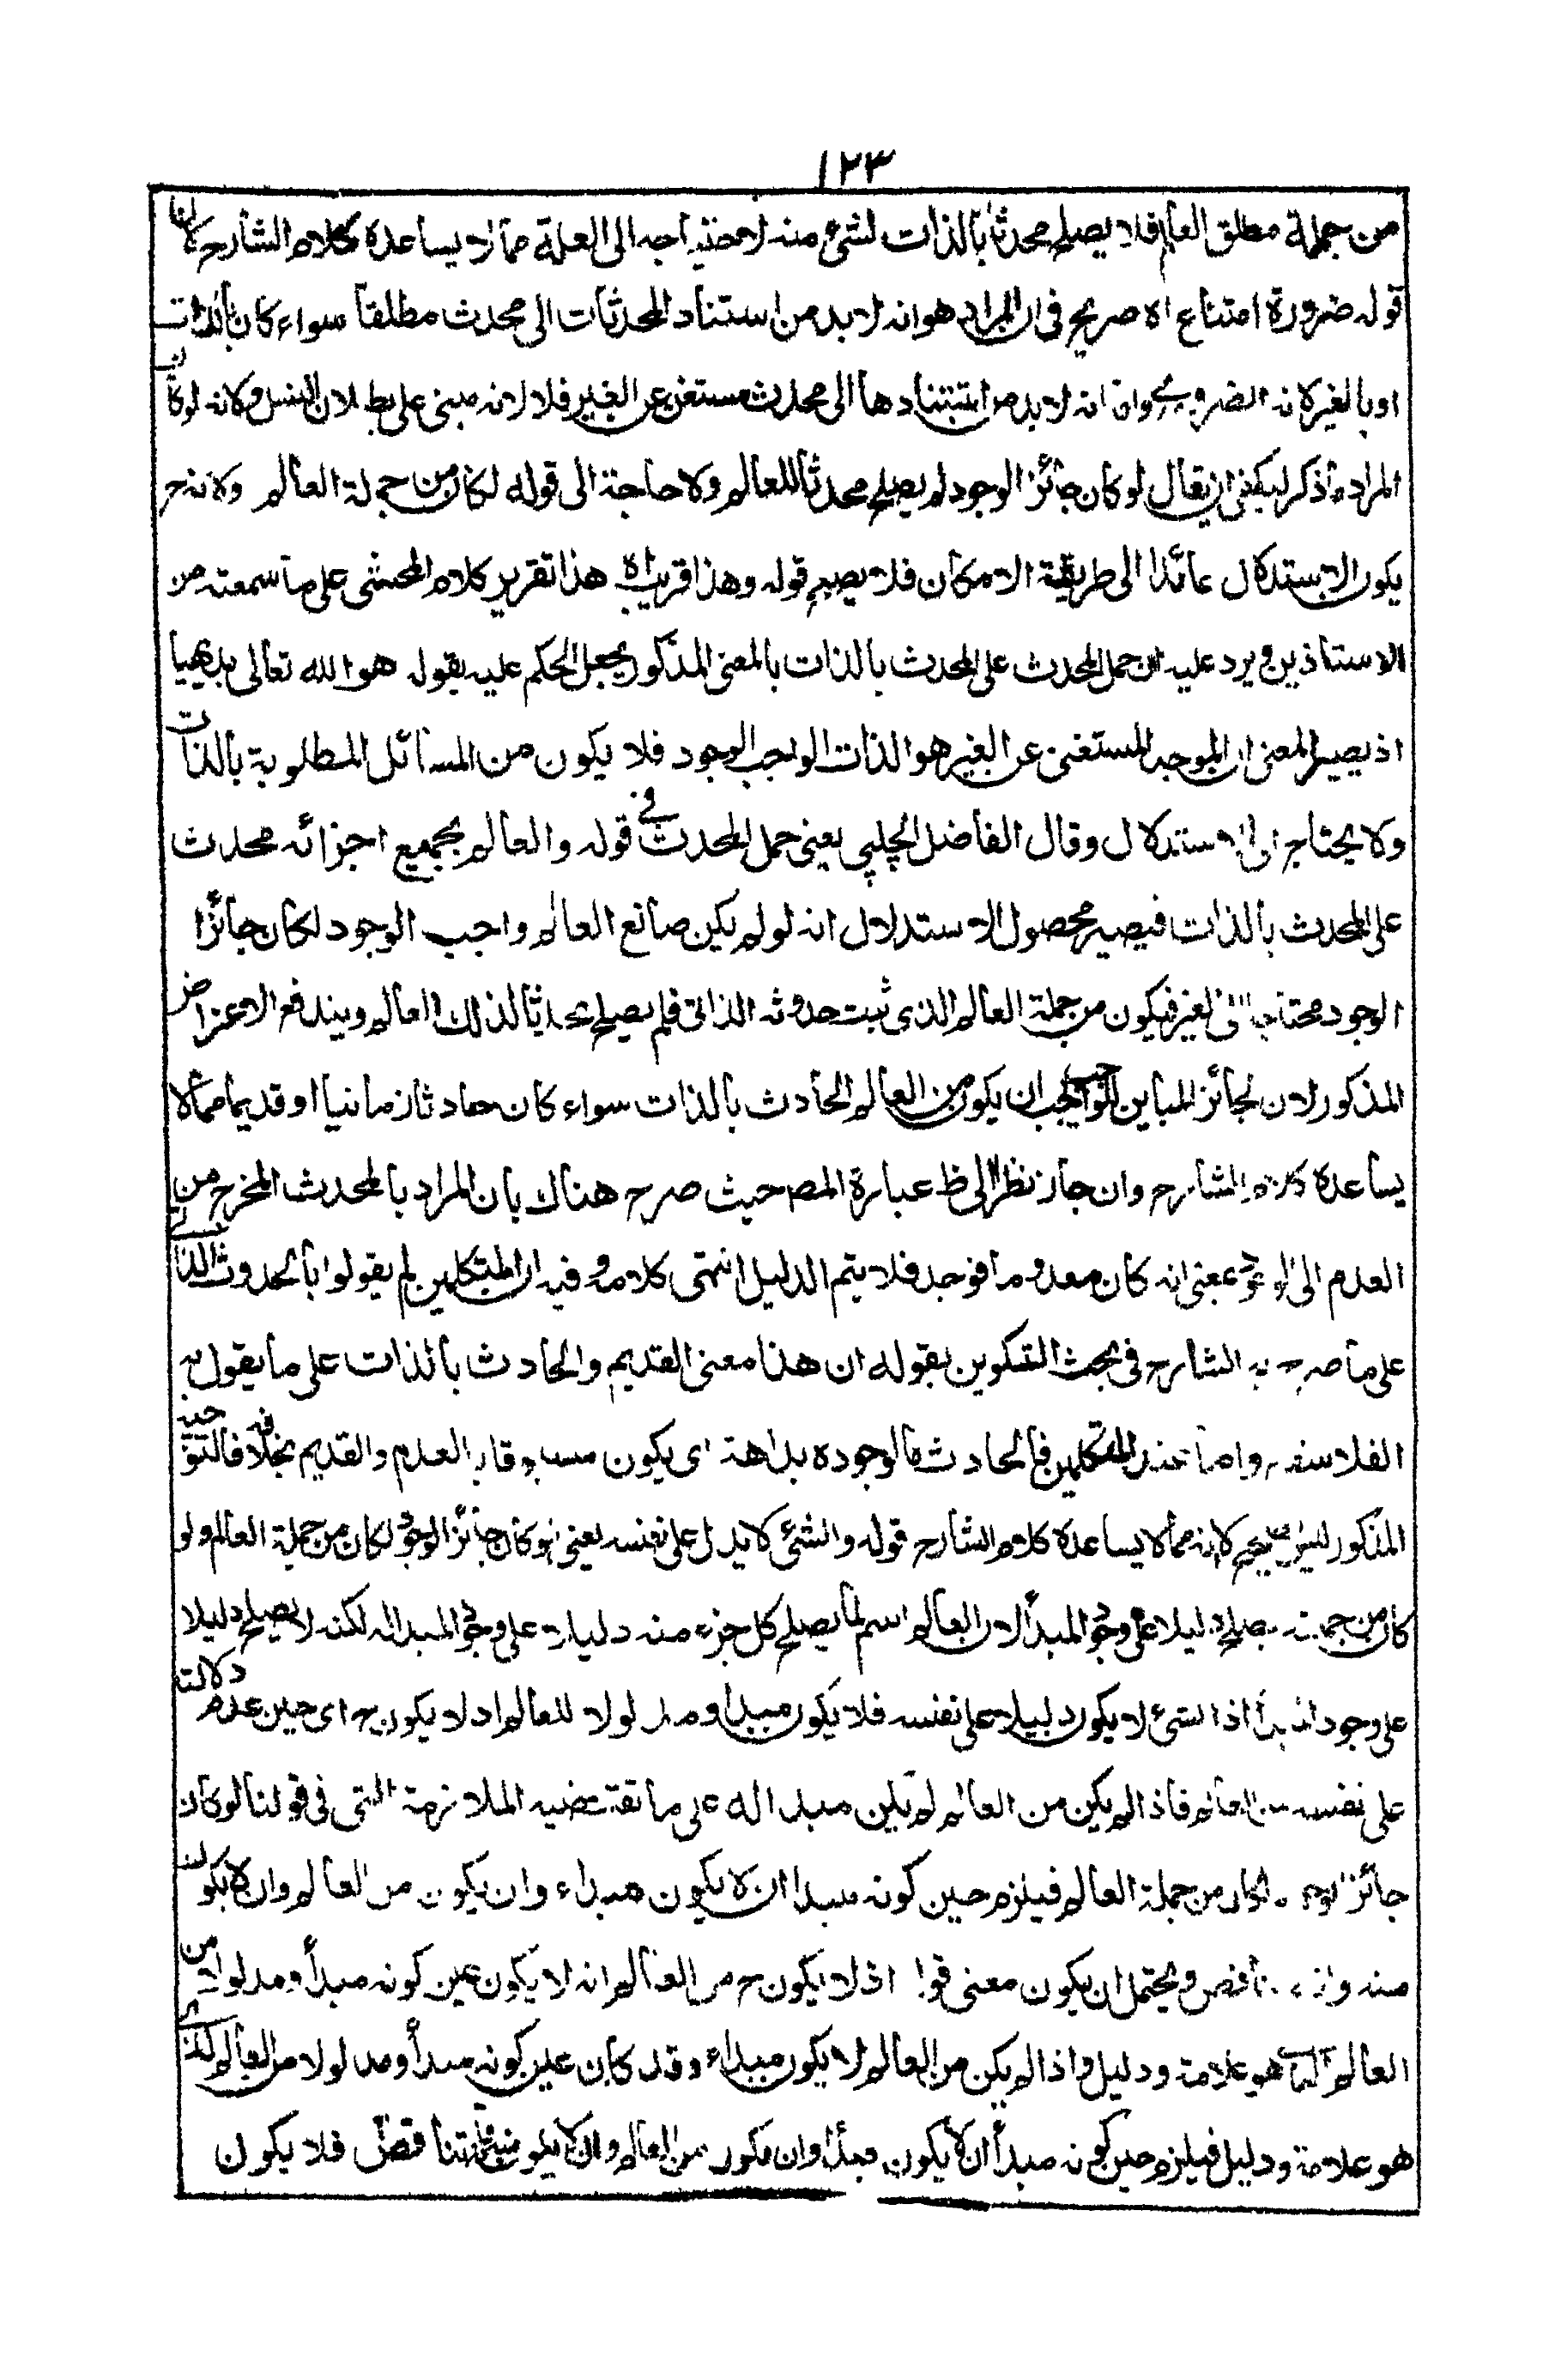 ١٢٣
من جملة مطلق العالم فلا يصلح محدثا بالذات لشئ منه لاحتياجه الى العلة مما لا يساعده كلام الشارح لان
قوله ضرورة امتناع اه صريح فى ان المراد هو انه لا بد من استناد المحدثات الى محدث مطلقا سواء كان بالذات
او بالغير لانه الضرورى واما انه لا بد من استنادها الى محدث مستغن عن الغير فلا لانه مبنى على بطلان التسلسل ولانه لو كان
المراد ما ذكر ليكفى ان يقال لو كان جائز الوجود لم يصلح محدثا للعالم ولا حاجة الى قوله لكان من جملة العالم ولانه ح
يكون الاستدلال عائدا الى طريقة الامكان فلا يصح قوله وهذا قريب اه هذا تقرير كلام المحشى على ما سمعته من
الاستاذين ويرد عليه ان حمل المحدث على المحدث بالذات بالمعنى المذكور يجعل الحكم عليه بقوله هو الله تعالى بديهيا
اذ يصير المعنى ان الموجد المستغنى عن الغير هو الذات الواجب الوجود فلا يكون من المسائل المطلوبة بالذات
ولا يحتاج الى الاستدلال وقال الفاضل الچلپى يعنى حمل المحدث فى قوله والعالم بجميع اجزائه محدث
على المحدث بالذات فيصير محصول الاستدلال انه لو لم يكن صانع العالم واجب الوجود لكان جائز
الوجود محتاجا الى الغير فيكون من جملة العالم الذى ثبت حدوثه الذاتى فلم يصلح محدثا لذلك العالم ويندفع الاعتراض
المذكور لان الجائز المباين للواجب يجب ان يكون من العالم الحادث بالذات سواء كان حادثا زمانيا او قديما مما لا
يساعده كلام الشارح وان جاز نظرا الى ظ عبارة المصـ حيث صرح هناك بان المراد بالمحدث المخرج من
العدم الى الوجود بمعنى انه كان معدوما فوجد فلا يتم الدليل انتهى كلامه وفيه ان المتكلمين لم يقولوا بالحدوث الذاتى
على ما صرح به الشارح فى بحث التكوين بقوله ان هذا معنى القديم والحادث بالذات على ما يقول به
الفلاسفة واما عند المتكلمين فالحادث ما لوجوده بداهة اى يكون مسبوقا بالعدم والقديم بخلافه فالتوجيه
المذكور ليس بصحيح لانه مما لا يساعده كلام الشارح قوله والشئ لا يدل على نفسه يعنى لو كان جائز الوجود لكان من جملة العالم ولو
كان من جملته يصلح دليلا على وجود المبدأ لان العالم اسم لما يصلح كل جزء منه دليلا على وجود المبدا له لكنه لا يصلح دليلا
على وجود المبدأ اذ الشئ لا يكون دليلا على نفسه فلا يكون مبدا ومدلولا للعالم اذ لا يكون ح اى حين عدم دلالته
على نفسه من العالم فاذا لم يكن من العالم لم يكن مبدا له على ما تقتضيه الملازمة التى فى قولنا لو كان
جائز الوجود لكان من جملة العالم فيلزم حين كونه مبدا ان لا يكون مبداء وان يكون من العالم وان لا يكون
منه وانه تناقض ويحتمل ان يكون معنى قوله اذ لا يكون ح من العالم انه لا يكون حين كونه مبدأ ومدلولا من
العالم الذى هو علامة ودليل واذا لم يكن من العالم لا يكون مبداء وقد كان حين كونه مبدأ ومدلولا من العالم الذى
هو علامة ودليل فيلزم حين كونه مبدأ ان لا يكون مبدأ وان يكون من العالم وان لا يكون منه تناقض فلا يكون